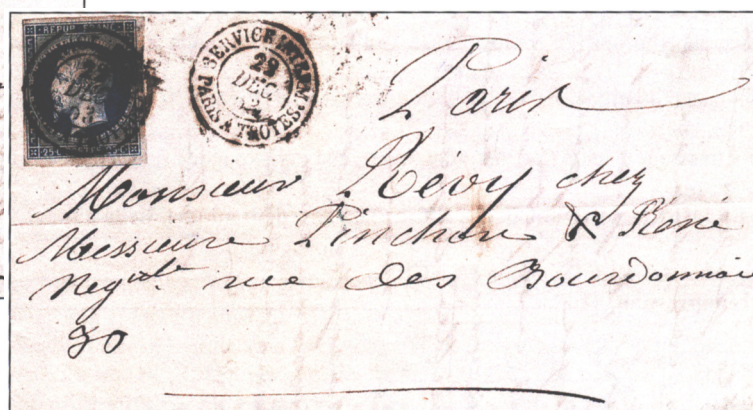 REPUB. FRANC.
SERVICE
29
DEC.
52
PARIS A TROYES
25 C
Paris
Monsieur Révy chez
Messieurs Pinchon & René
Negts. rue des Bourdonnai
30